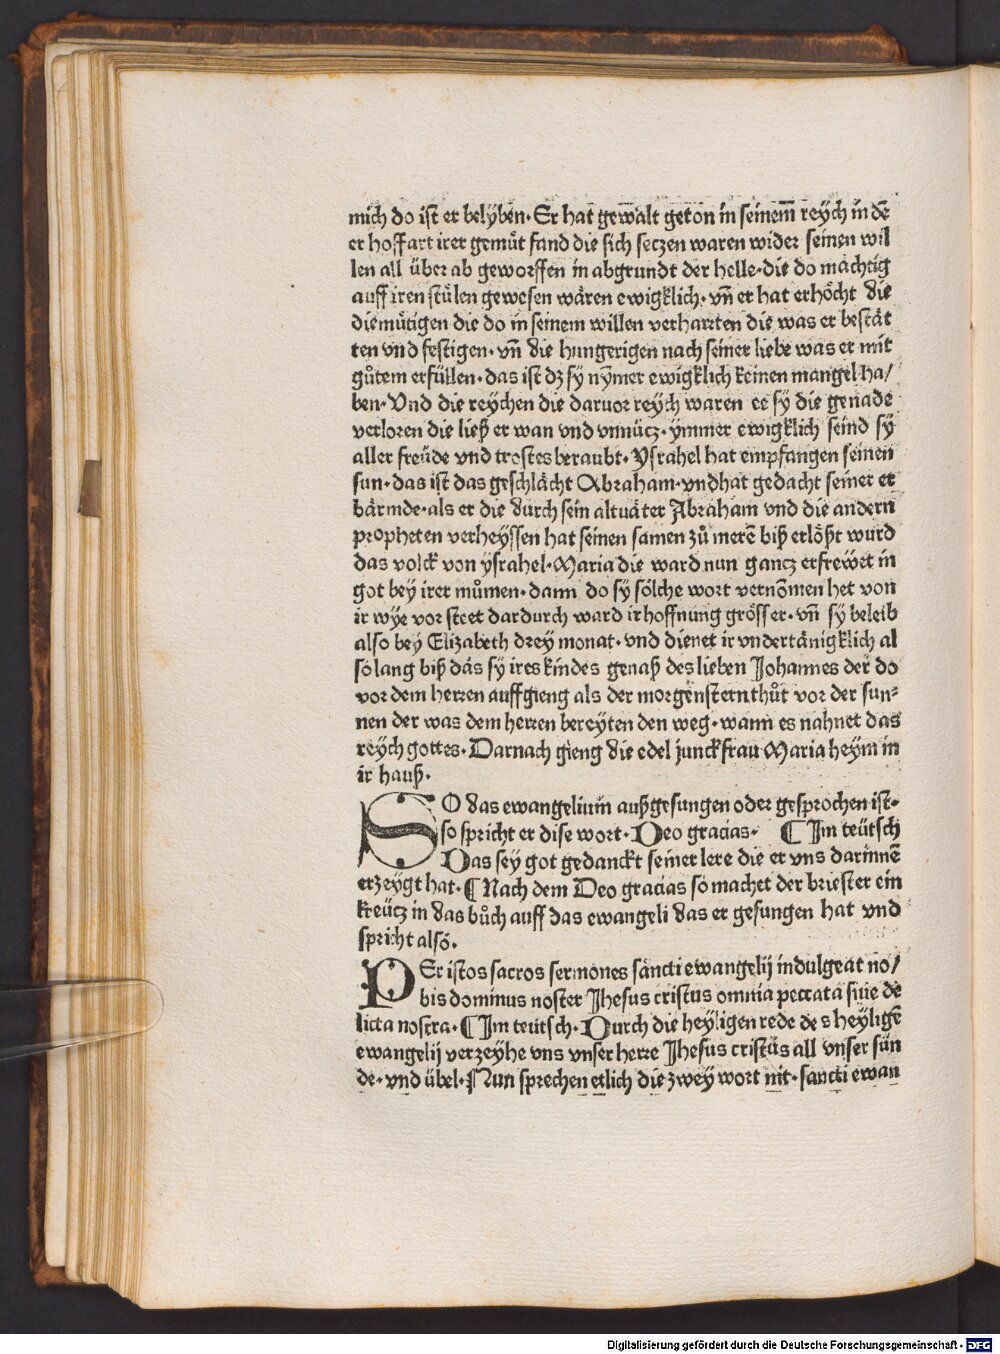 mich do ist er belyben· Er hat gewalt geton in seinem̄ reych in dē
er hoffart irer gemuͤt fand die sich seczen waren wider seinen wil
len all über ab geworffen in abgrundt der helle·die do maͤchtig
auff iren stuͤlen gewesen waͤren ewigklich· vn̄ er hat erhoͤcht die
diemuͤtigen die do in seinem willen verharrten die was er bestaͤt
ten vnd festigen· vn̄ die hungerigen nach seiner liebe was er mit
guͦtem erfüllen· das ist dz sÿ nÿmer ewigklich keinen mangel ha/
ben· Vnd die reychen die daruor reych waren ee sÿ die genade
verloren die ließ er wan vnd vnnücz· ymmer ewigklich seind sÿ
aller freüde vnd trostes beraubt· Ysrahel hat empfangen seinen
sun· das ist das geschlaͤcht Abraham· vndhat gedacht seiner er
baͤrmde·als er die durch sein altuaͤter Abraham vnd die andern
propheten verheyssen hat seinen samen zuͦ merē biß erloͤßt wurd
das volck von ysrahel·Maria die ward nun gancz erfrewet in
got bey irer muͦmen· dann do sy soͤlche wort vernōmen het von
ir wye vor steet dardurch ward ir hoffnung groͤsser· vn̄ sy beleib
also bey Elizabeth drey monat· vnd dienet ir vndertaͤnigklich al
so lang biß das sy ires kindes genaß des lieben Johannes der do
vor dem herren auffgieng als der morgenstern thuͦt vor der sun⸗
nen der was dem herren bereyten den weg· wann es nahnet das
reych gottes· Darnach gieng die edel junckfrau Maria heym in
ir hauß·
SO das ewangelium außgesungen oder gesprochen ist·
so spricht er dise wort· Deo gracias· ¶ Im teütsch
Das sey got gedanckt seiner lere die er vns darinnē
erzeygt hat· ¶ Nach dem Deo gracias so machet der briester ein
kreücz in das buͦch auff das ewangeli das er gesungen hat vnd
spricht also·
PEr istos sacros sermones sancti ewangelij indulgeat no/
bis dominus noster Jhesus cristus omnia peccata siue de
licta nostra· ¶ Im teutsch· Durch die heyligen rede des heyligē
ewangelij verzeyhe vns vnser herre Jhesus cristus all vnser sün
de· vnd übel· Nun sprechen etlich die zwey wort nit· sancti ewan
Digitalisierung gefördert durch die Deutsche Forschungsgemeinschaft - DFG